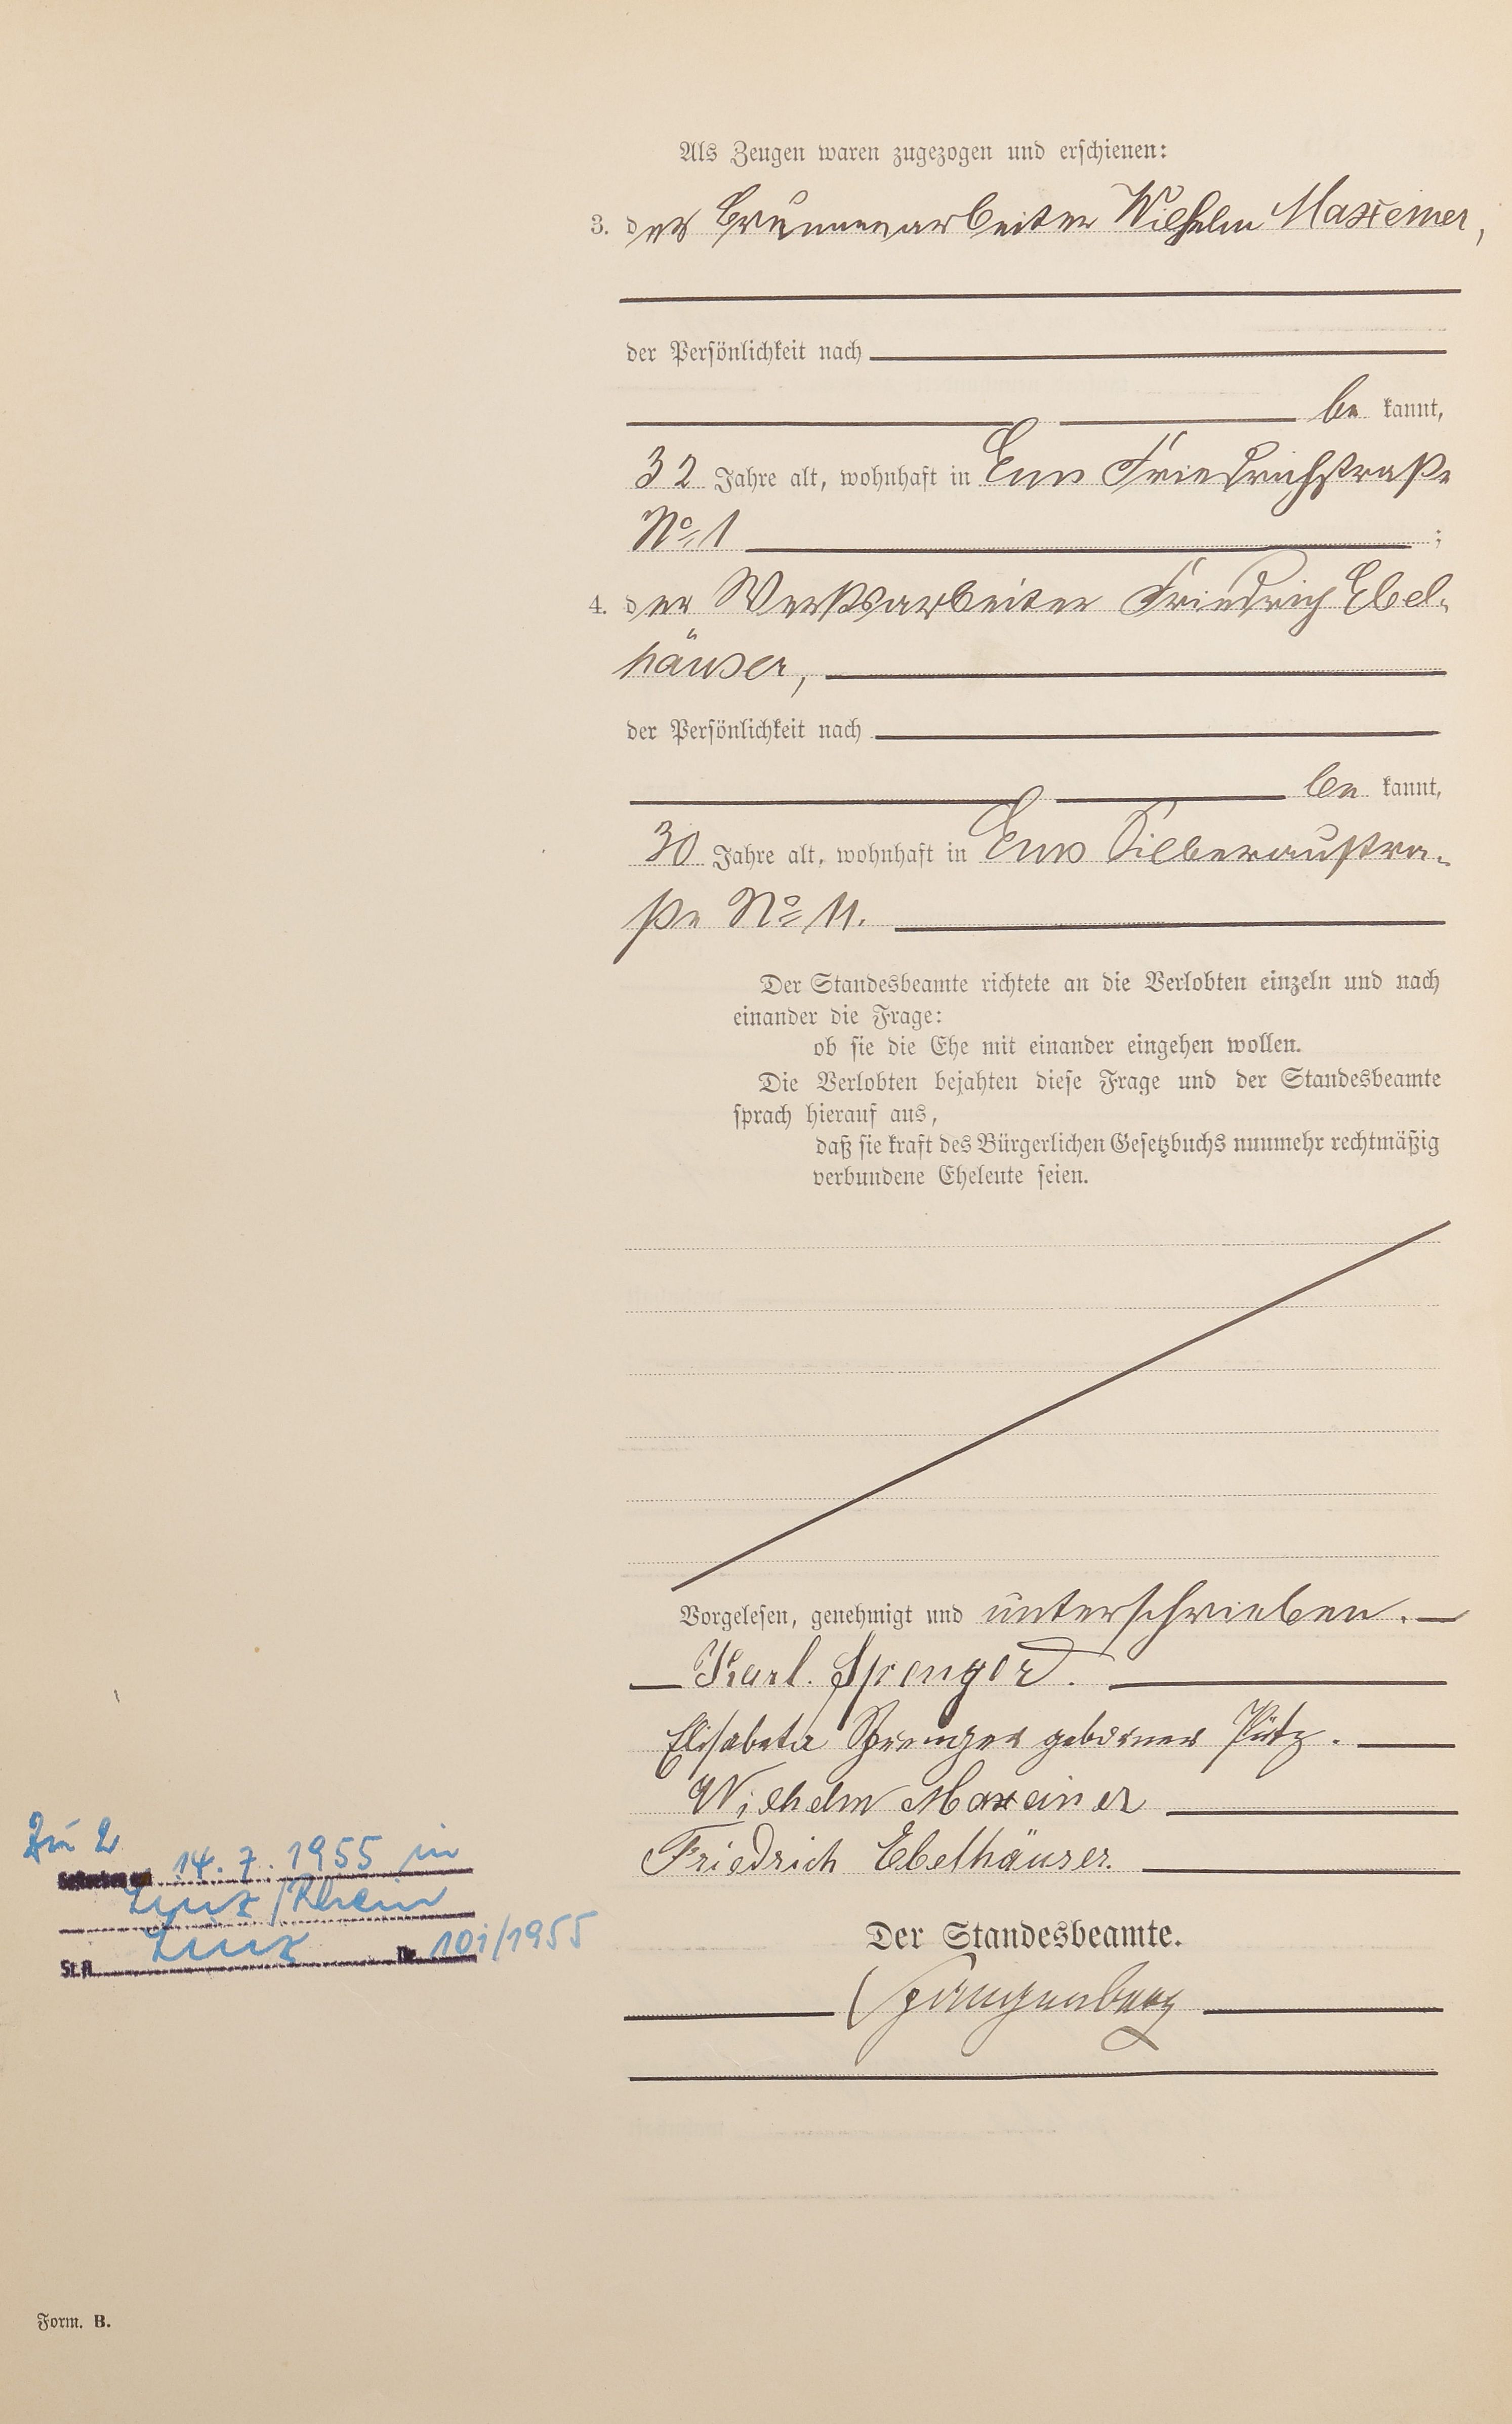 Als Zeugen waren zugezogen und erschienen:
3. der Brunnenarbeiter Wilhelm Maxeiner,
der Persönlichkeit nach
be kannt,
32 Jahre alt, wohnhaft in Ems Friedrichstraße
No 1 ;
4. der Werksarbeiter Friedrich Ebel-
häuser,
der Persönlichkeit nach
be kannt,
30 Jahre alt, wohnhaft in Ems Silberaustra-
ße No 11.
Der Standesbeamte richtete an die Verlobten einzeln und nach
einander die Frage:
ob sie die Ehe mit einander eingehen wollen.
Die Verlobten bejahten diese Frage und der Standesbeamte
sprach hierauf aus,
daß sie kraft des Bürgerlichen Gesetzbuchs nunmehr rechtmäßig
verbundene Eheleute seien.
Vorgelesen, genehmigt und unterschrieben.
Karl. Spenger.
Elisabeta Spenger geborner Pütz.
Wilhelm Maxeiner
Friedrich Ebelhäuser.
Zu 2
Gestorben am 14.7.1955 in
Linz/Rhein
St.A. Linz Nr. 101/1955
Der Standesbeamte.
Spangenberg
Form. B.